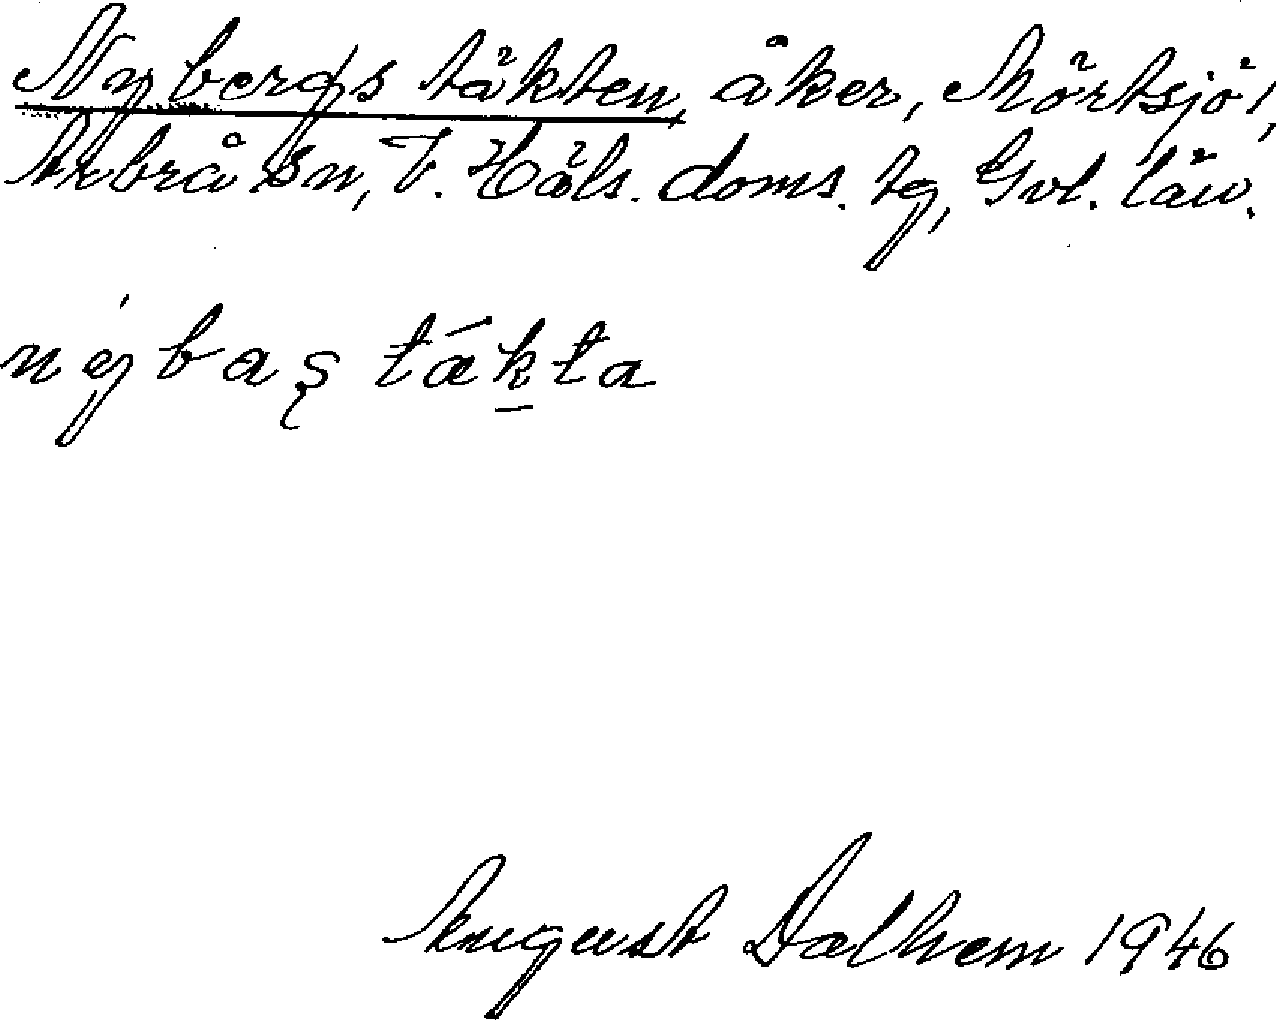 Nybergs täkten, åker, Mörtsjö 1,
Arbrå sn, V. Häls. doms. tg, Gvl. län.
nýbaş tǽk̠ta
August Dalhem 1946